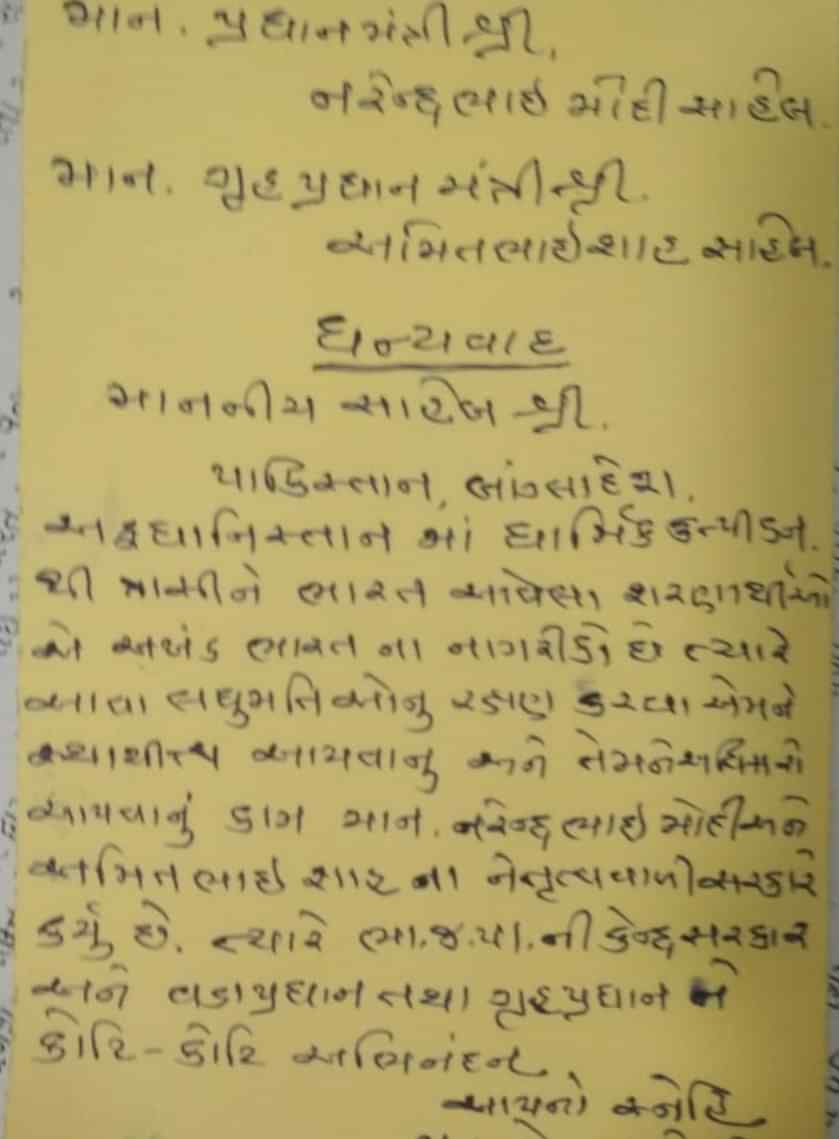 માન. પ્રધાનમંત્રી શ્રી.
નરેન્દ્રભાઇ મોદી સાહેબ.
માન. ગૃહ પ્રધાન મંત્રી શ્રી.
અમિતભાઇ શાહ સાહેબ.
ધન્યવાદ
માનનીય સાહેબ શ્રી.
પાકિસ્તાન, બાંગ્લાદેશ.
અફઘાનિસ્તાન માં ધાર્મિક ઉત્પીડન.
થી ત્રાસીને ભારત આવેલા શરણાર્થીઓ
એ અખંડ ભારત ના નાગરીકો છે ત્યારે
આવા લઘુમતિઓનુ રક્ષણ કરવા એમને
આપવાનુ અને તેમને
આપવાનું કામ માન. નરેન્દ્રભાઇ મોદી અને
અમિતભાઇ શાહ ના નેતૃત્વવાળી સરકારે
કર્યું છે. ત્યારે ભા.જ.પા.ની કેન્દ્ર સરકાર
અને વડાપ્રધાન તથા ગૃહપ્રધાન ને
કોટિ-કોટિ અભિનંદન.
આપનો સ્નેહિ